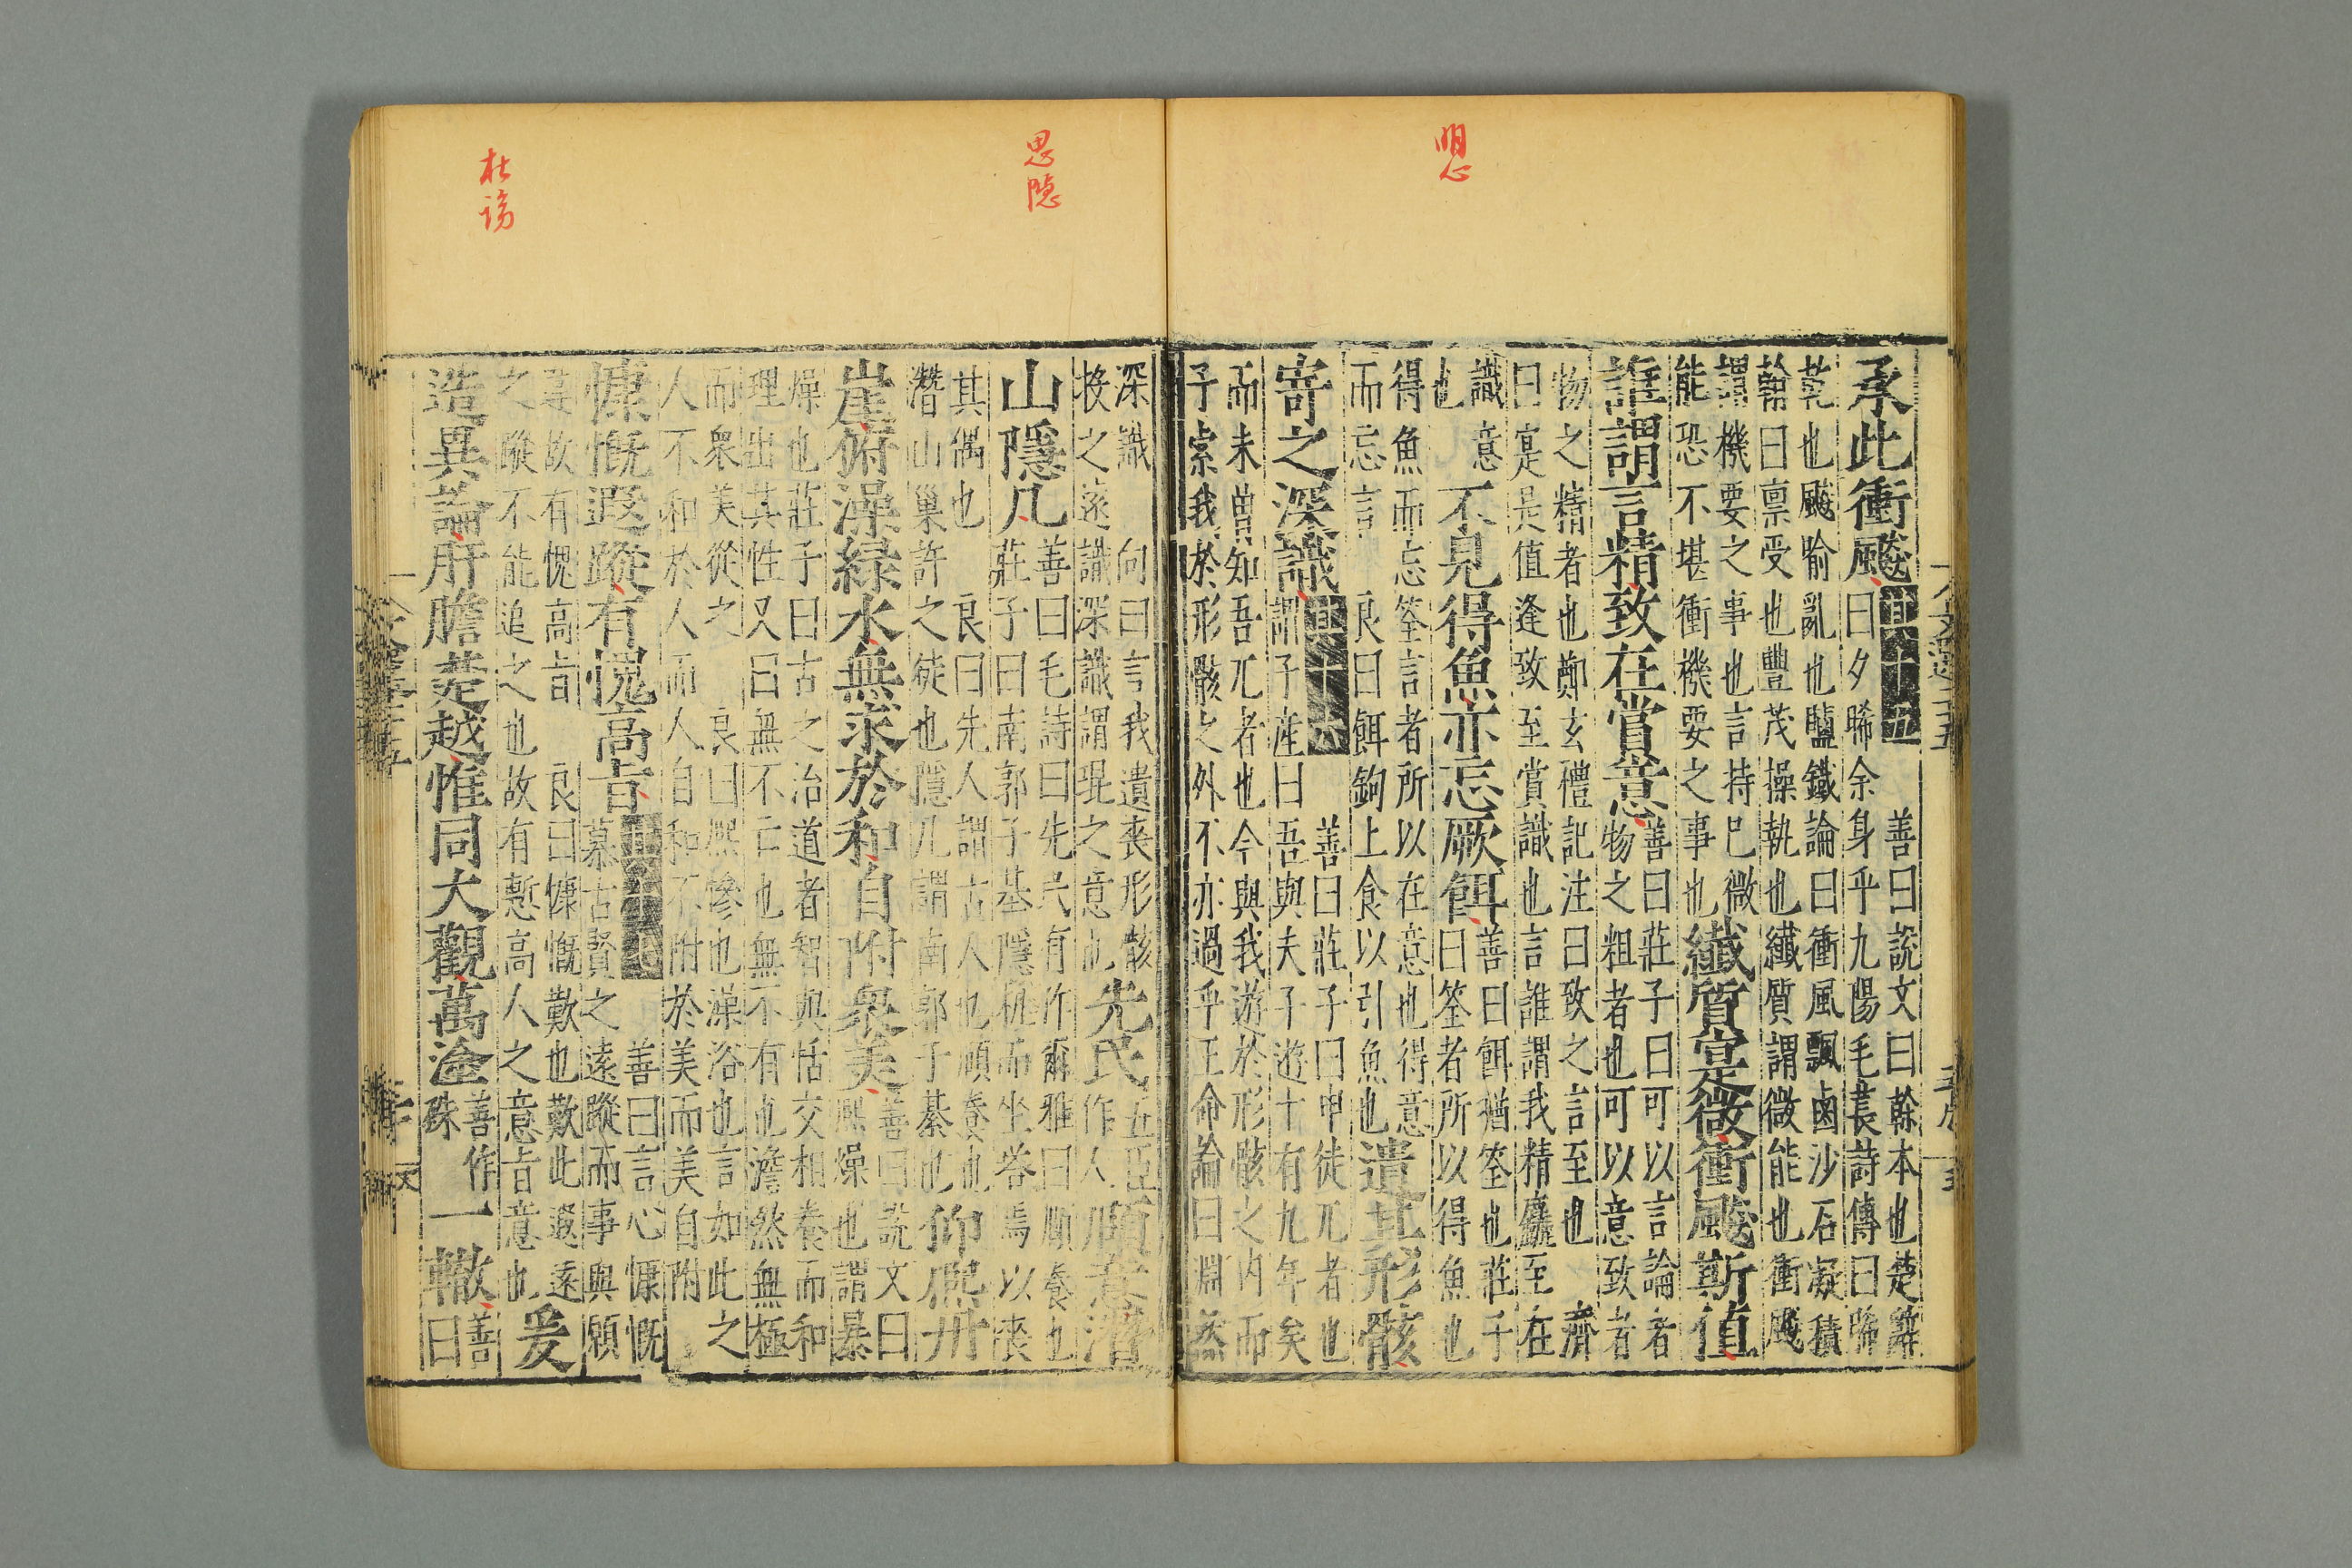 明心
承此衝飈其十五
善曰說文曰幹本也楚辭
曰夕晞余身乎九陽毛萇詩傳曰晞
乾也飈喻亂也鹽鐵論曰衝風飄鹵沙石凝積
翰曰禀受也豐茂操執也纖質謂微能也衝飈
謂機要之事也言持已微
能恐不堪衝機要之事也
纖質寔微衝飈斯值
誰謂言精致在賞意
善曰莊子曰可以言論者
物之粗者也可以意致者
物之精者也鄭玄禮記注曰致之言至也 濟
曰寔是值逢致至賞識也言誰謂我精麤至在
識意
也
不見得魚亦忘厥餌
善曰餌猶筌也莊子
曰筌者所以得魚也
得魚而忘筌言者所以在意也得意
而忘言 良曰餌鉤上食以引魚也
遺其形骸
寄之深識其十六
善曰莊子曰申徒兀者也
謂子産曰吾與夫子遊十有九年矣
而未曾知吾兀者也今與我遊於形骸之内而
子索我於形骸之外不亦過乎王命論曰淵然
思隱
深識 向曰言我遺喪形骸
投之遠識深識謂琨之意也
先民
五臣
作人
頤意潛
山隱几
善曰毛詩曰先民有作爾雅曰頤養也
莊子曰南郭子綦隱机而坐荅焉以喪
其偶也 良曰先人謂古人也頤養也
潛山巢許之徒也隱几謂南郭子綦也
仰熈丹
崖俯澡緑水無求於和自附衆美
善曰說文曰
熈燥也謂暴
燥也莊子曰古之治道者智與恬交相養而和
理出其性又曰無不亡也無不有也澹然無極
而衆美從之 良曰熈燥也澡浴也言如此之
人不和於人而人自和不附於美而美自附
慷慨遐蹤有愧高旨
善曰言心慷慨
慕古賢之遠蹤而事與願
故有愧高旨 良曰慷慨歎也歎此遐遠
之蹤不能追之也故有慙高人之意旨意也
爰
造異論肝膽楚越惟同大觀萬塗
善作
殊
一轍
善
曰